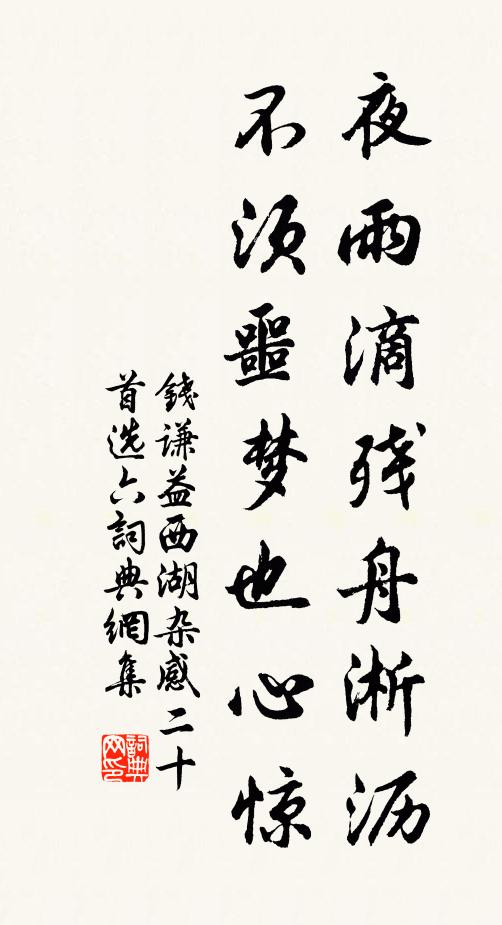 夜雨滴残舟淅沥
不须噩梦也心惊
錢谦益西湖杂感二十
首选六詞典網集
詞典
网印